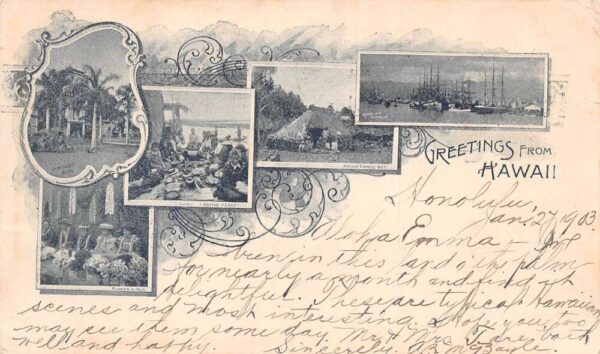 NATIVE GRASS HUT
FLOWER GIRLS
GREETINGS FROM
HAWAII
Honolulu,
Jan. 27, 1903.
Aloha Emma –
been in this land the palm
for nearly a month and find it
delightful. These are typical Hawaiian
scenes and most interesting. Hope you, too,
may see them some day. Mr & Mrs are both
well and happy. Sincerely,